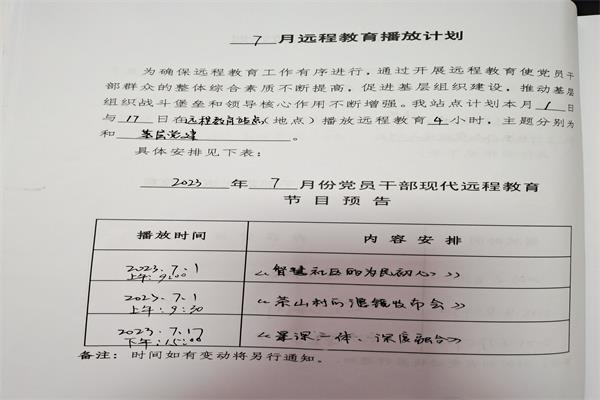 7 月远程教育播放计划
为确保远程教育工作有序进行，通过开展远程教育使党员干
部群众的整体综合素质不断提高，促进基层组织建设，推动基层
组织战斗堡垒和领导核心作用不断增强。我站点计划本月 1 日
与 17 日在远程教育站点（地点）播放远程教育 4 小时，主题分别为
和 基层党建 。
具体安排见下表：
2023 年 7 月份党员干部现代远程教育
节目预告
播放时间 内容安排
2023.7.1 《智慧社区的为民初心》
上午：9:00
2023.7.1 《茶山村的 发布会》
上午：9:30
2023.7.17 一体、深度融合》
下午：15:00
备注： 时间如有变动将另行通知。